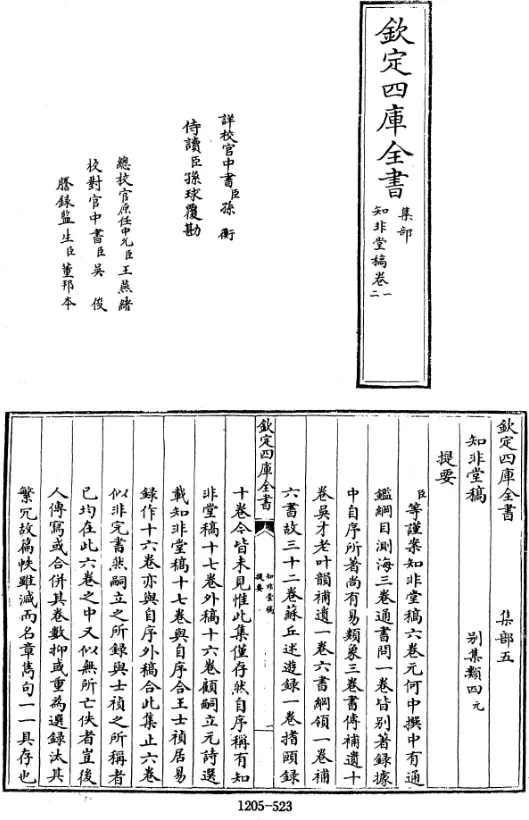 欽定四庫全書
集部
知非堂稿卷一二
詳校官中書臣孫衡
侍讀臣孫球覆勘
總校官原任中允臣王燕緒
校對官中書臣吳俊
謄錄監生臣董邦本
欽定四庫全書 集部五
知非堂稿 別集類四元
提要
臣等謹案知非堂稿六卷元何中撰中有通
鑑綱目測海三卷通書問一卷皆別著錄據
中自序所著尚有易類象三卷書傳補遺十
卷吳才老叶韻補遺一卷六書綱領一卷補
六書故三十二卷蘇丘述遊録一卷搘頤録
欽定四庫全書
知非堂稿
提要
一
十卷今皆未見惟此集僅存然自序稱有知
非堂稿十七卷外稿十六卷顧嗣立元詩選
載知非堂稿十七卷與自序合王士禎居易
録作十六卷亦與自序外稿合此集止六卷
似非完書然嗣立之所録與士禎之所稱者
已均在此六卷之中又似無所亡佚者豈後
人傳寫或合併其卷數抑或重為選録汰其
繁冗故篇帙雖減而名章雋句一一具存也
1205-523